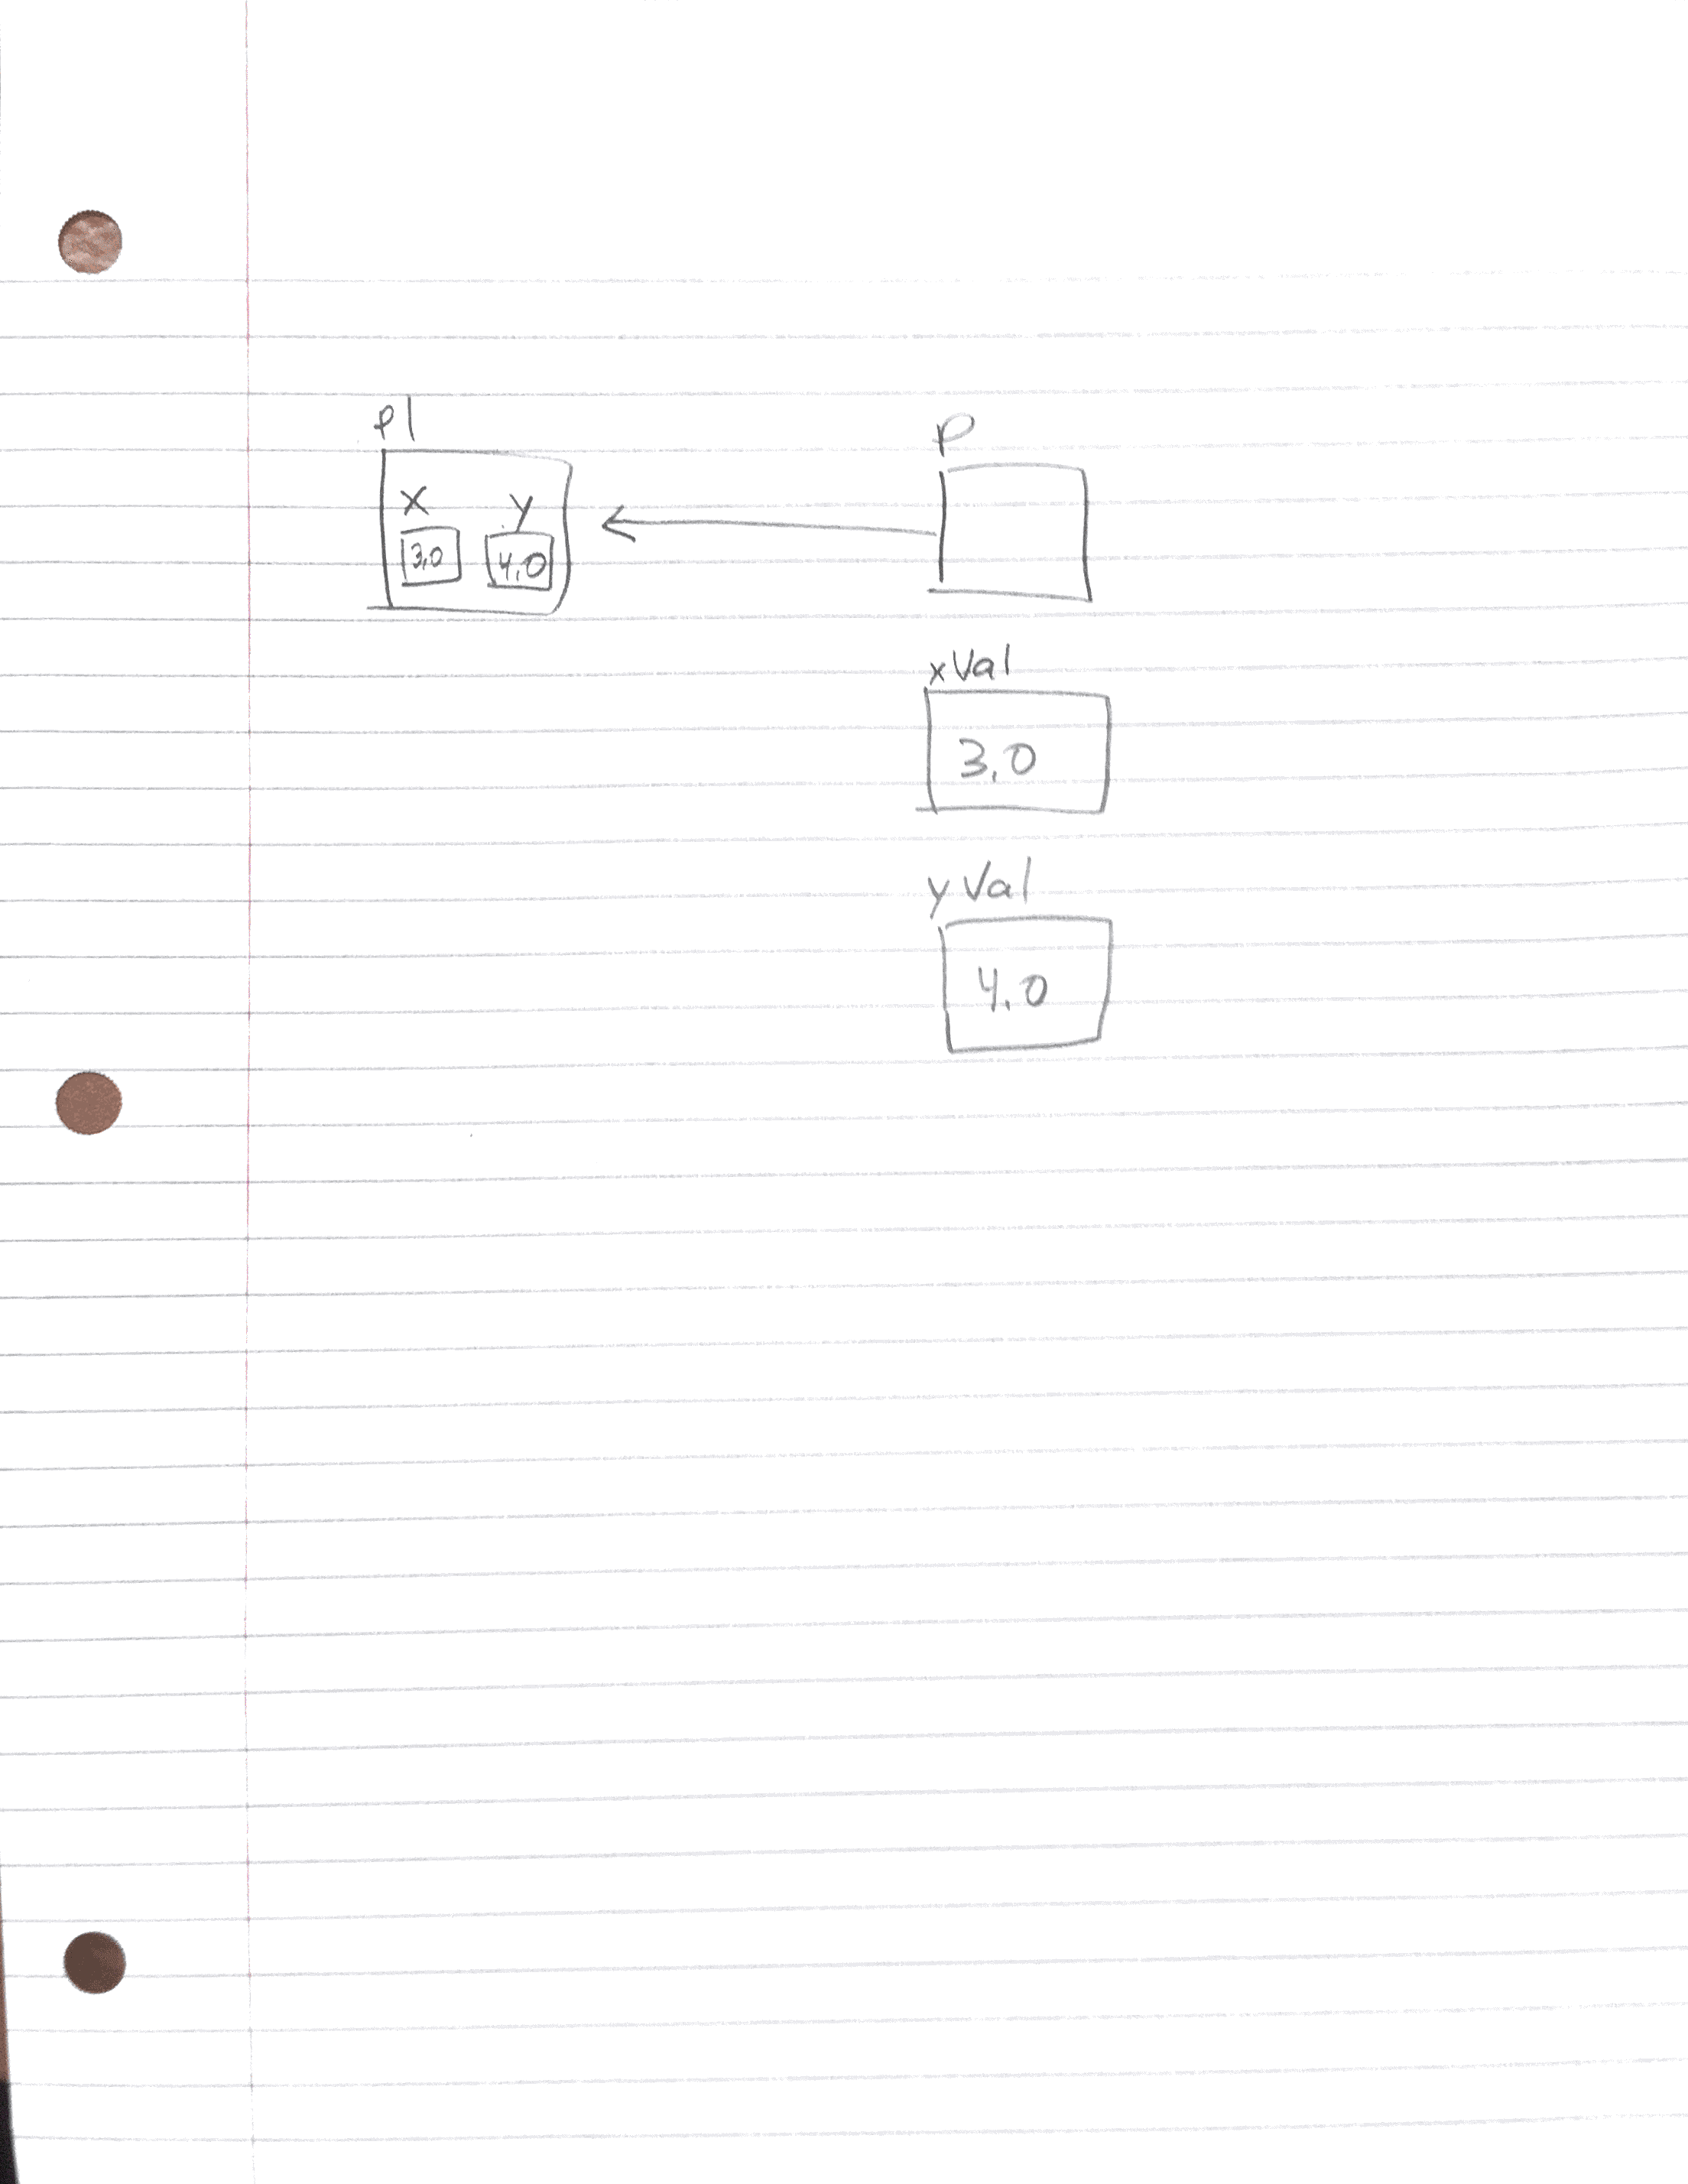 p1
P
x y
3.0 4.0
xVal
3.0
yVal
4.0